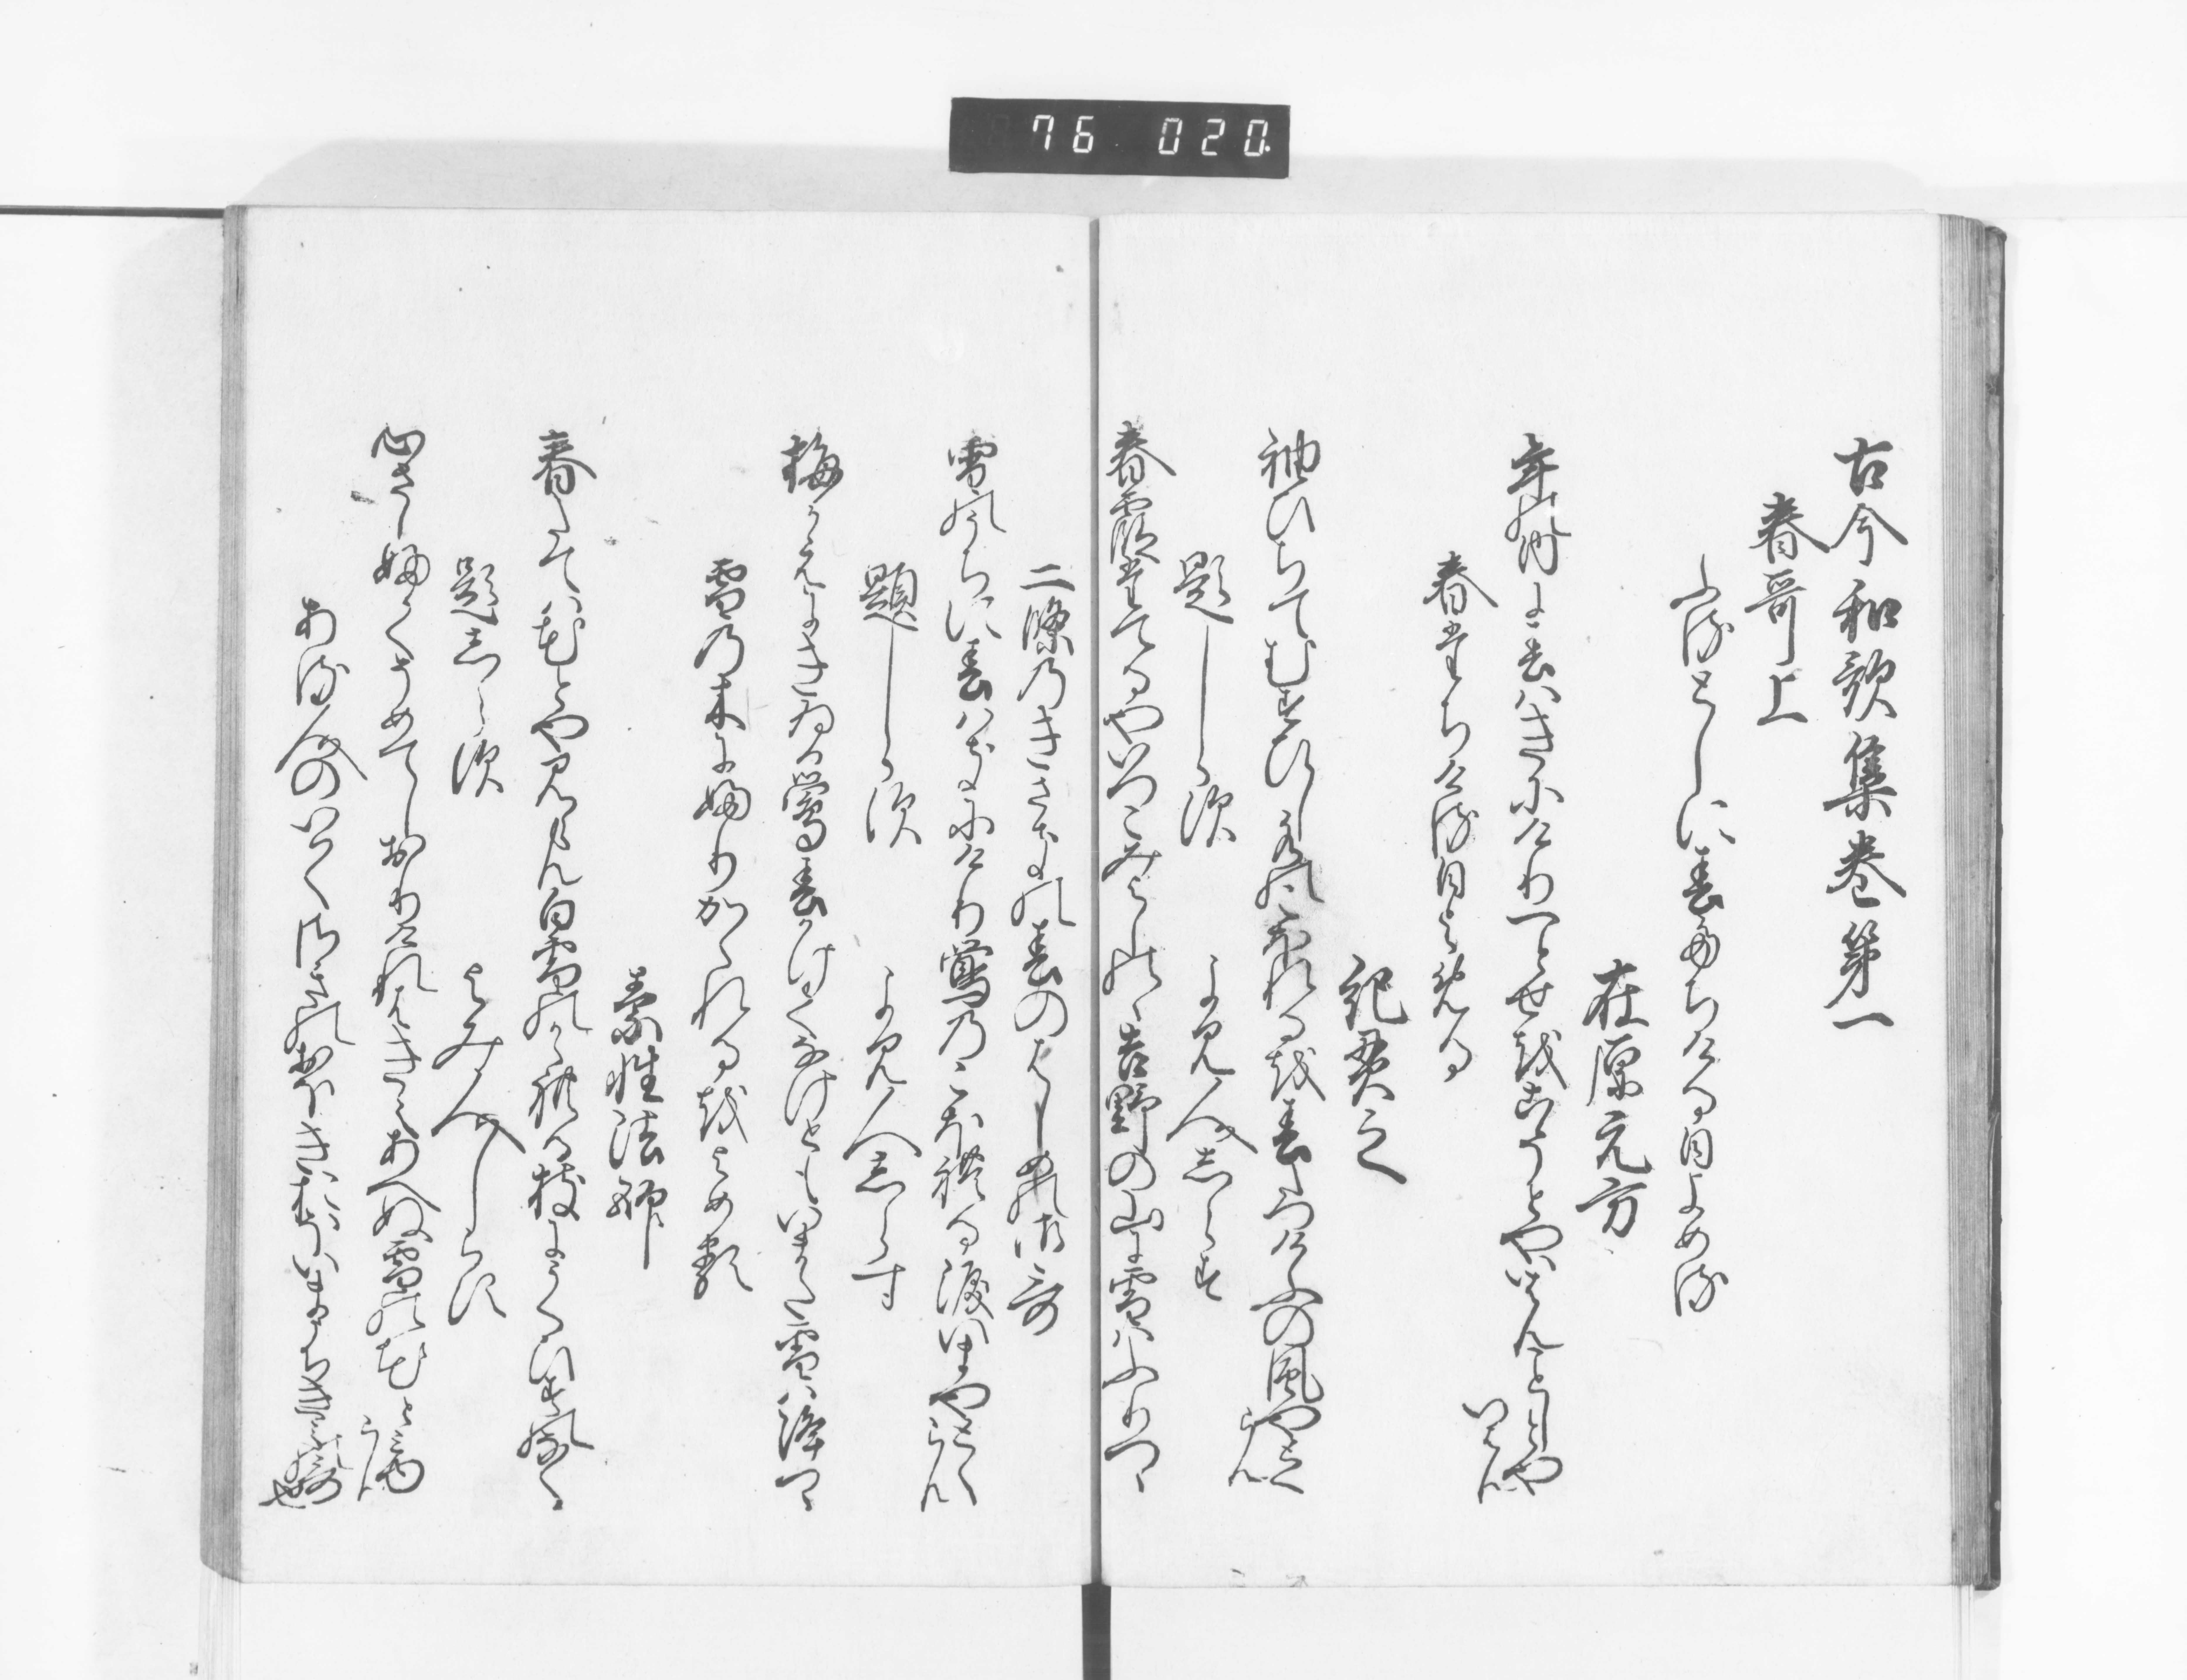 76 020
古今和歌集巻第一
春哥上
ふるとしに春たちける日よめる
在原元方
年の内に春はきにけり一とせをこそとやいはんことしとや
いはん
春たちける日よめる
紀貫之
袖ひちてむすひし水のこほれるを春たつけふの風やとく
らん
題しらす
よみ人しらす
春霞たてるやいつこみよしのゝ吉野の山に雪はふりつゝ
二條のきさきの春のはしめの御哥
雪の内に春はきにけり鶯のこほれる涙いまやとく
らん
題しらす
よみ人しらす
梅かえにきゐる鶯春かけてなけともいまた雪は降つゝ
雪の木にふりかゝれるをよめる
素性法師
春たては花とや見らん白雪のかゝれる枝にうくひすのなく
題しらす
よみ人しらす
心さしふかくそめてしおりけれはきえあへぬ雪の花と見ゆ
らん
ある人のいはくさきのおほきおほいまうちきみの哥
也